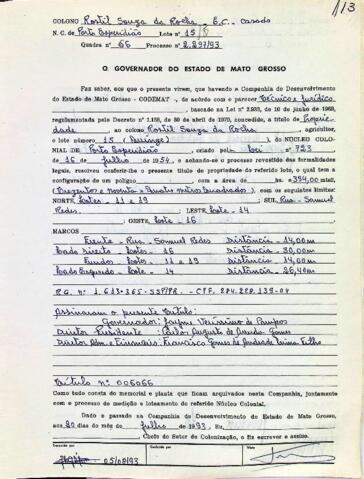 113
COLONO Rostil Souza da Rocha - B.C. - Casado
N. C. de Porto Esperidião Lote n.º 15
Quadra n.º 66 Processo n.º 2.297/93
O GOVERNADOR DO ESTADO DE MATO GROSSO
Faz saber, aos que o presente virem, que havendo a Companhia de Desenvolvimento
do Estado de Mato Grosso - CODEMAT -, de acordo com o parecer Técnico e Jurídico
baseado na Lei n.º 2.933, de 10 de junho de 1969,
regulamentada pelo Decreto n.º 1.138, de 30 de abril de 1970, concedido, a título de Proprie
dade ao colono Rostil Souza da Rocha, agricultor,
o lote número 15 (Quinze) do NÚCLEO COLO-
NIAL DE Porto Esperidião criado pela Lei n.º 723
de 16 de julho de 1954, e achando-se o processo revestido das formalidades
legais, resolveu conferir-lhe o presente título de propriedade do referido lote, o qual tem a
configuração de um polígono com a área de ha 394,00 m²
(Trezentos e noventa e Quatro metros Quadrados), com os seguintes limites:
NORTE Lotes - 11 e 19; SUL Rua - Samuel
Redes, LESTE Lote - 14
OESTE Lote - 16
MARCOS
Frente - Rua - Samuel Redes Distância - 14,00m
Lado Direito - Lote - 16 Distância - 30,00m
Fundos - Lotes - 11 e 19 Distância - 14,00m
Lado Esquerdo - Lote - 14 Distância - 26,40m
R.G. nº 1.613.365-SSP/PR. - CPF. 274.228.139-04
Assinaram o presente título:
Governador: Jayme Veríssimo de Campos
Diretor Presidente: Paulo Augusto de Arruda Gomes
Diretor Adm. e Financeiro: Francisco Gomes de Andrade Lima Filho
Título nº 006066
Como tudo consta do memorial e planta que ficam arquivados nesta Companhia, juntamente
com o processo de medição e loteamento do referido Núcleo Colonial.
Dado e passado na Companhia de Desenvolvimento do Estado de Mato Grosso,
aos 20 dias do mês de julho de 1993, Eu,
Chefe do Setor de Colonização, o fiz escrever e assino.
05/08/93